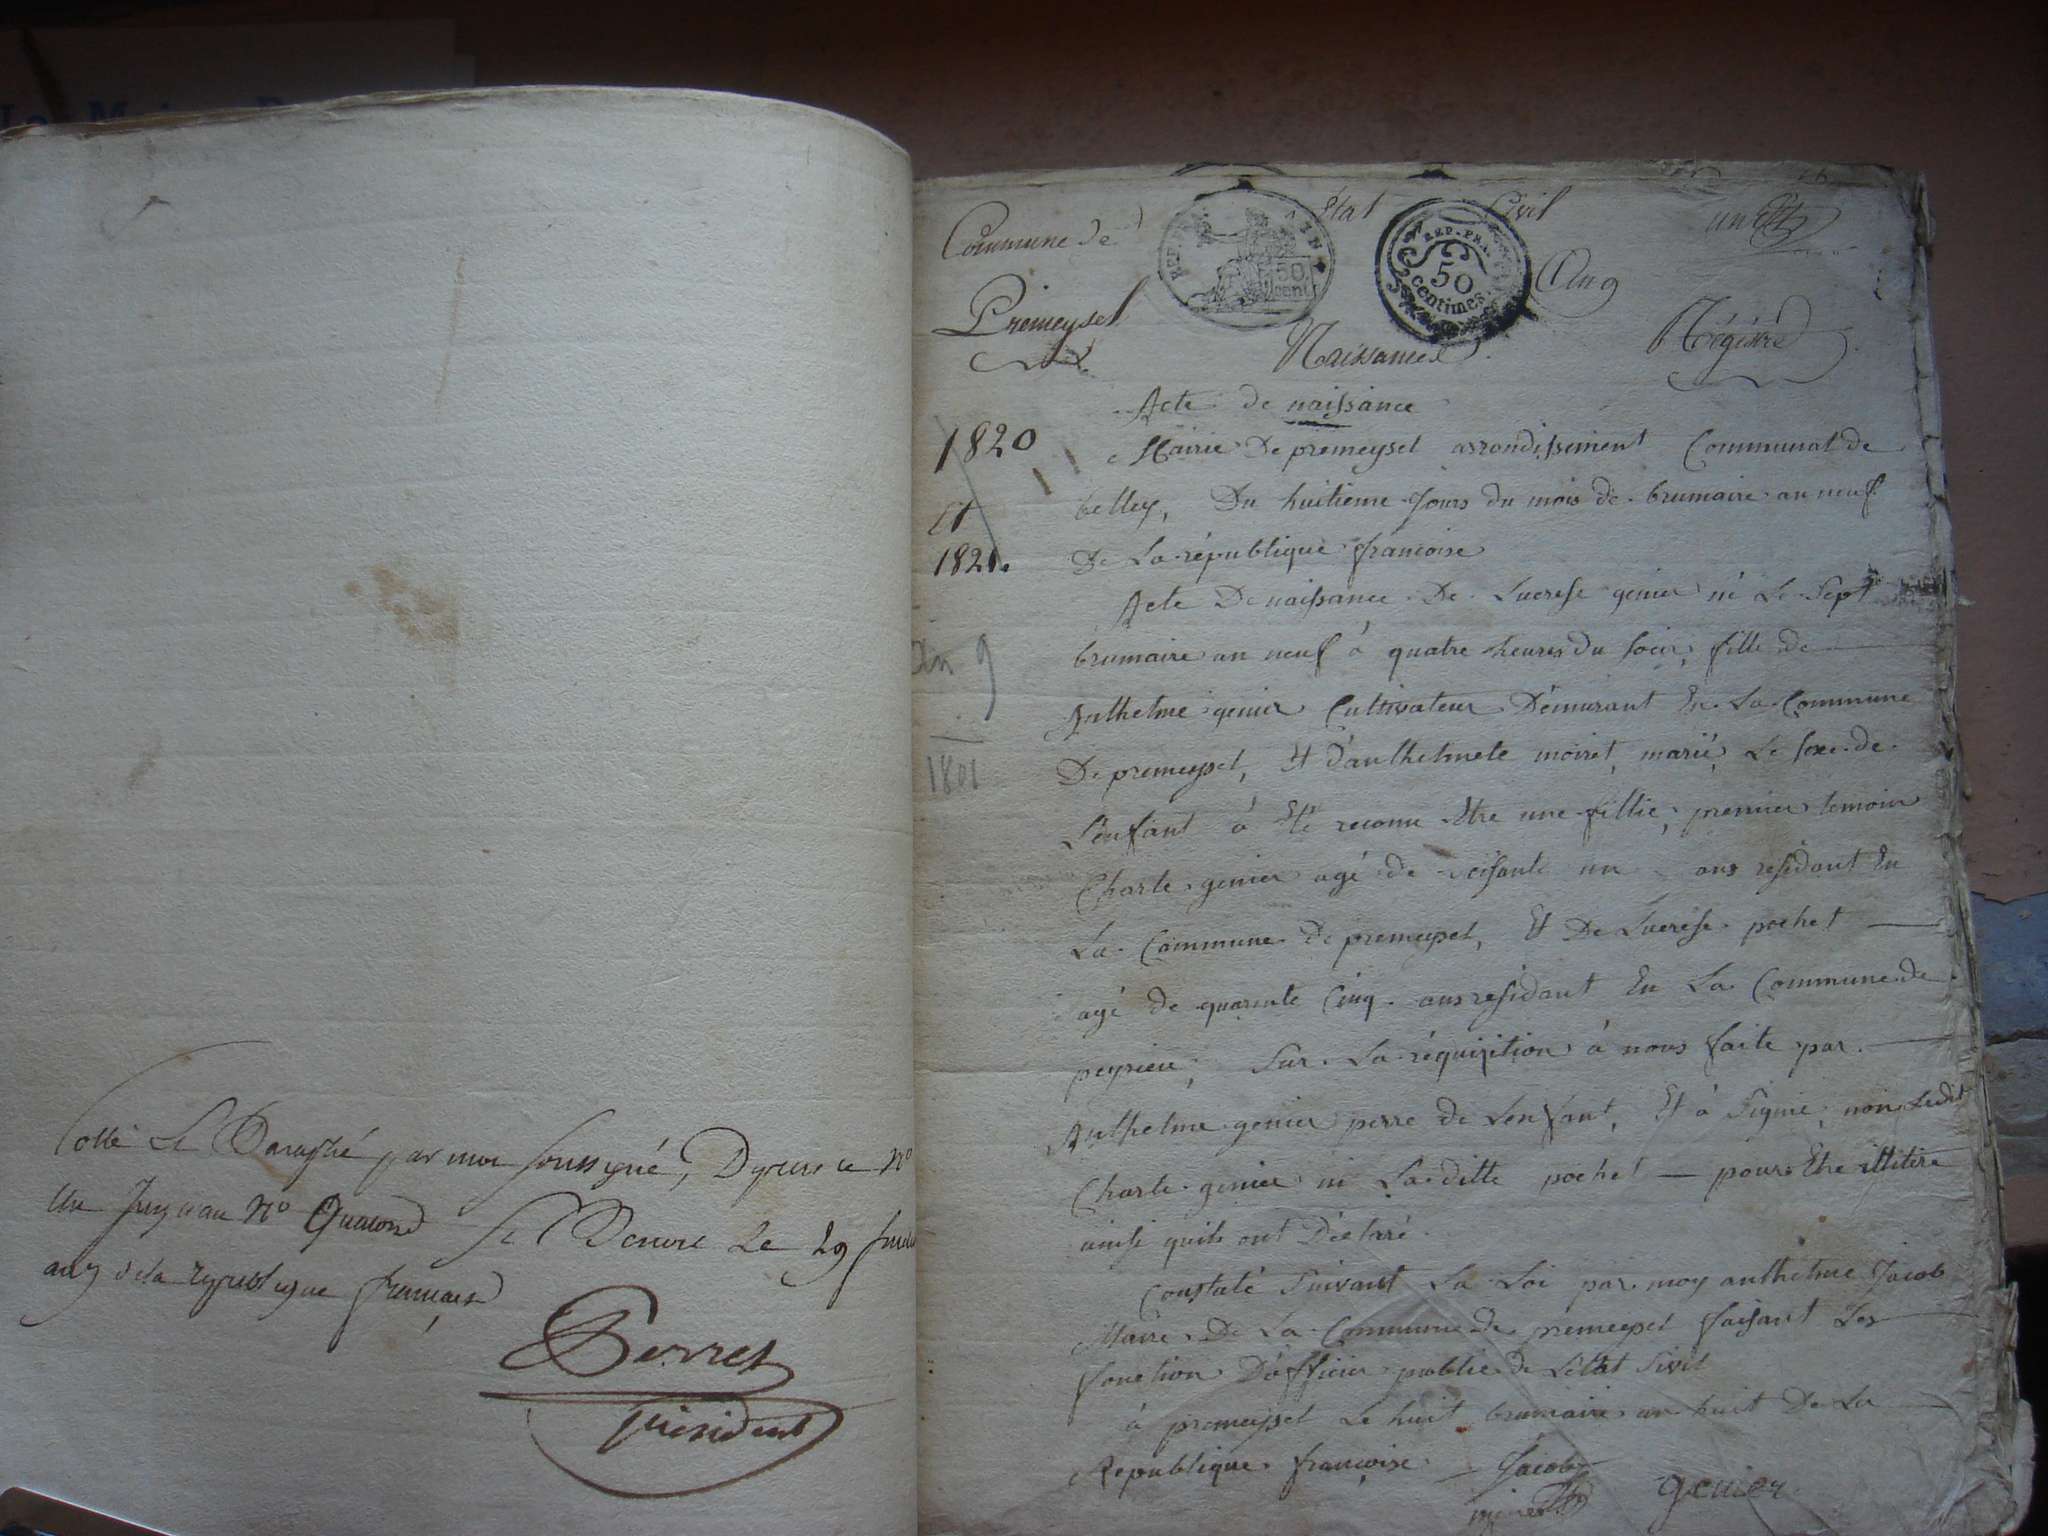 Cotté Le Paraphé par moi soussigné, Depuis ce N°
Un Jusqu'au N° Le 29
an 9 de la republique française
Perret
président
Etat Civil
Commune de
REP. FRA.
50 cent
50 centimes
An 9
Premeysel
Naissance
Régistre
Acte de naissance
1820
Mairie De premeysel arrondissement Communal de
Et
belley, Du huitieme Jours du mois de brumaire an neuf
1821.
De La république francoise
Acte De naissance De Lucresse genier né Le Sept
an 9
brumaire an neuf à quatre heures du soir, fille de
Anthelme genier Cultivateur Démurant En La Commune
1801
De premeysel, Et d'anthelmete moiret, marié, Le sexe de
L'enfant à Eté reconu Etre une fillie, premier temoin
Charle genier agé de soisante un ans résidant En
La Commune De premeysel, Et De Lucresse pochet
agé de quarente Cinq ans residant En La Commune de
peyrieu, Sur La réquizition à nous faite par
Anthelme genier perre de Lenfant, Et à Signié, non Ledit
Charle genier ni Laditte pochet — pour Etre illitére
ainsi quils ont Déclaré.
Constaté Suivant La Loi par moy anthelme Jacob
Maire De La Commune de premeysel faisant Les
fonction D'officier public de Létat Sivil
à premeysel Le huit brumaire an huit De La
Republique francoise Jacob
maire genier